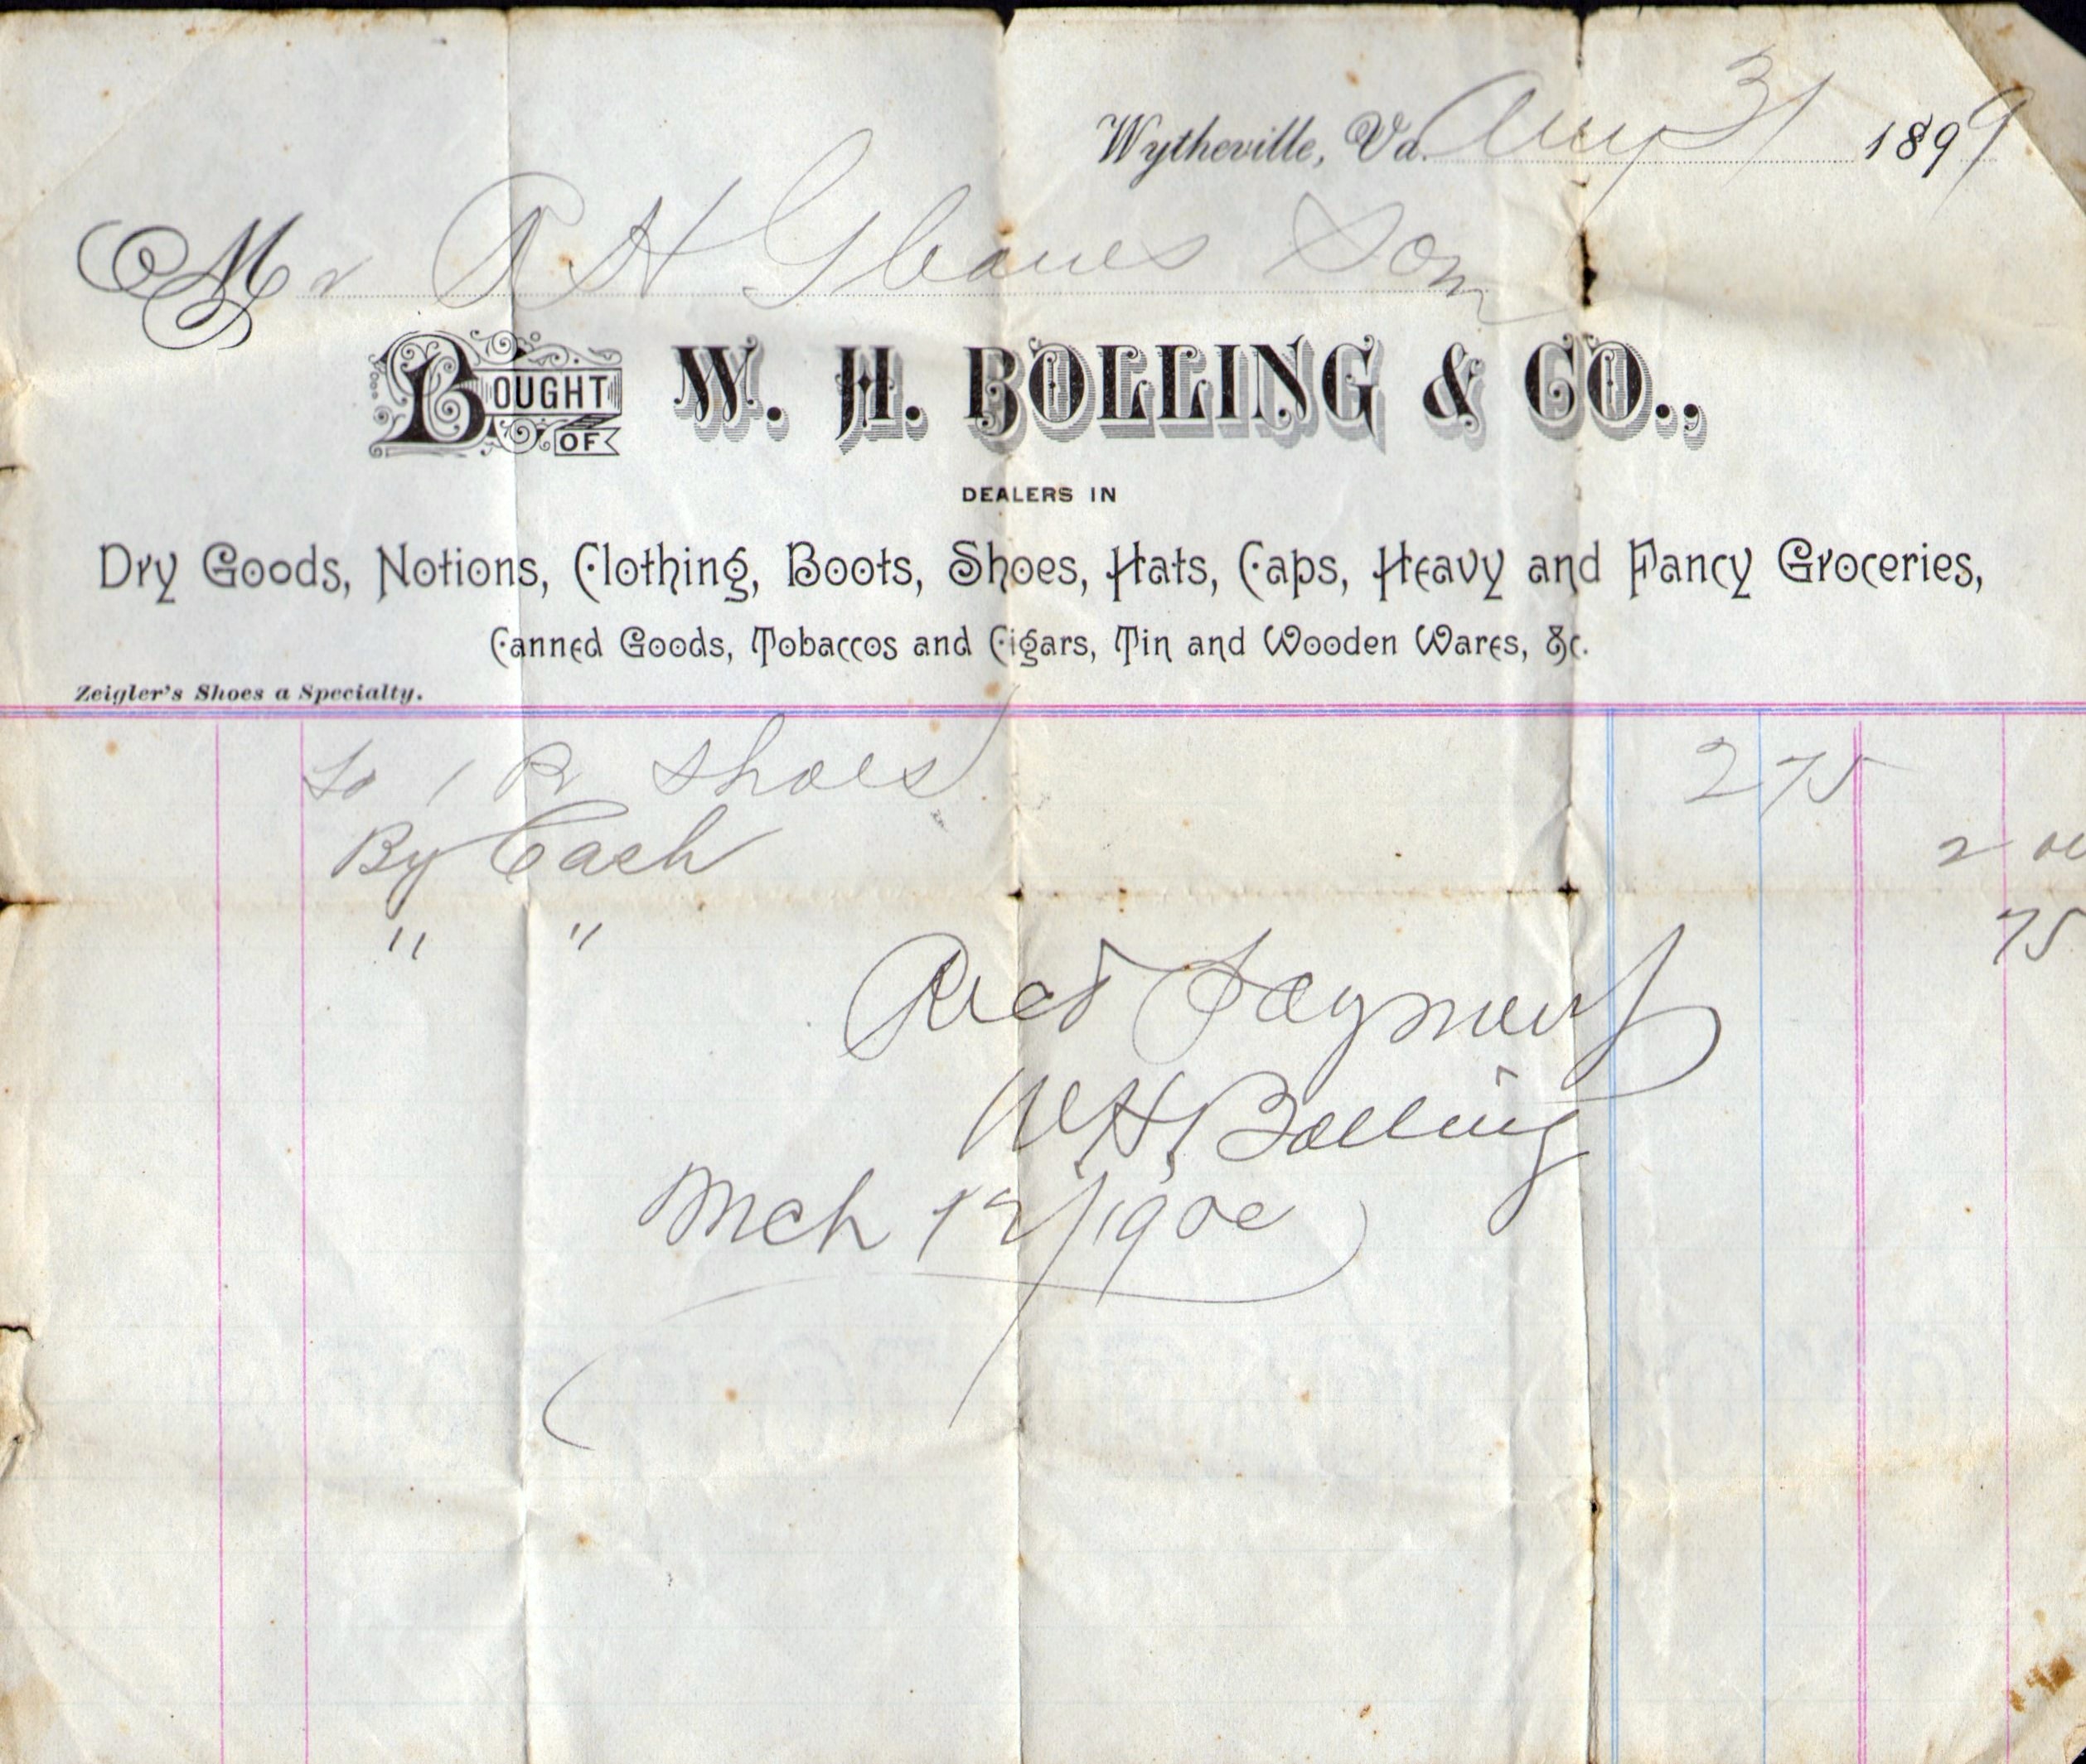 Wytheville, Va. Aug 31 1899
Mr R H Gleaves Son
BOUGHT OF W. H. BOLLING & CO.,
DEALERS IN
Dry Goods, Notions, Clothing, Boots, Shoes, Hats, Caps, Heavy and Fancy Groceries,
Canned Goods, Tobaccos and Cigars, Tin and Wooden Wares, &c.
Zeigler's Shoes a Specialty.
To 1 Pr Shoes 2 75
By Cash 2 00
" " 75
Recd Payment
W H Bolling
Mch 12/1900